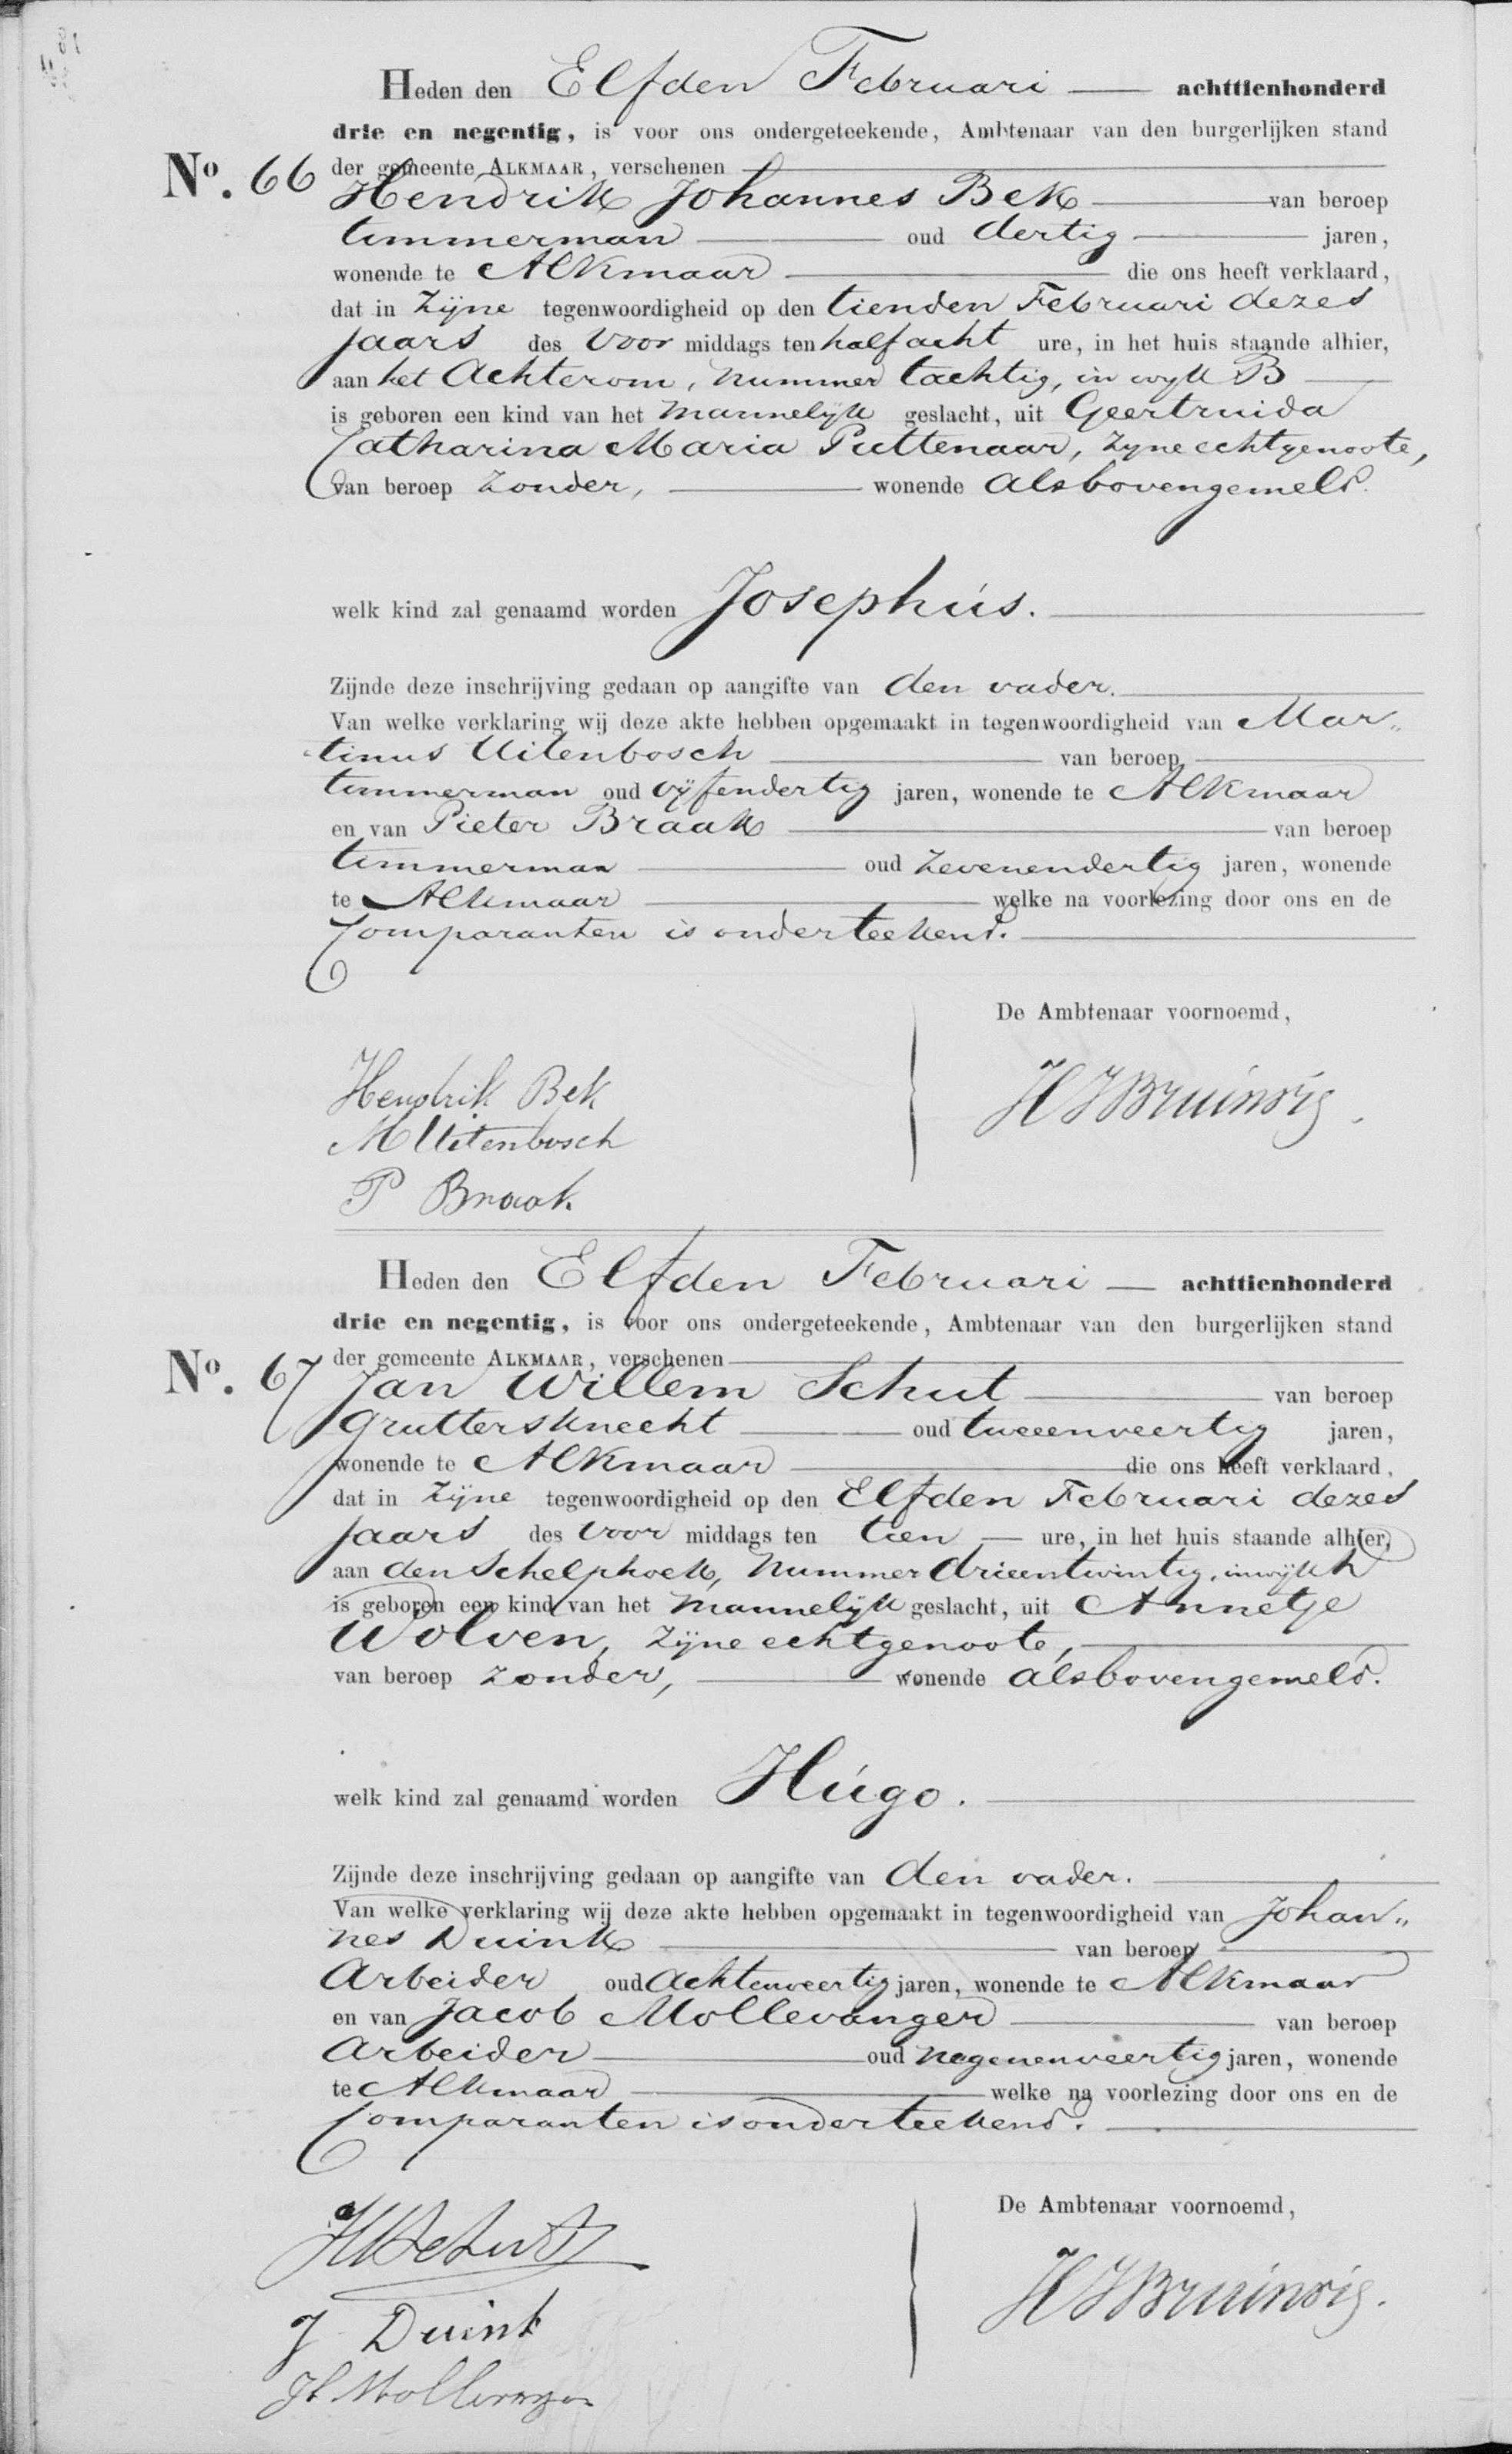 Heden den Elfden Februari — achttienhonderd
drie en negentig, is voor ons ondergeteekende, Ambtenaar van den burgerlijken stand
der gemeente ALKMAAR, verschenen
No. 66 Hendrik Johannes Bek van beroep
timmerman oud dertig jaren,
wonende te Alkmaar die ons heeft verklaard,
dat in zijne tegenwoordigheid op den tienden Februari dezes
jaars des voor middags ten half acht ure, in het huis staande alhier,
aan het Achterom, nummer tachtig, in wijk B
is geboren een kind van het mannelijk geslacht, uit Geertruida
Catharina Maria Puttenaar, zijne echtgenoote,
van beroep zonder, wonende als bovengemeld.
welk kind zal genaamd worden Josephús.
Zijnde deze inschrijving gedaan op aangifte van den vader.
Van welke verklaring wij deze akte hebben opgemaakt in tegenwoordigheid van Mar„
tinus Uitenbosch van beroep
timmerman oud vijfendertig jaren, wonende te Alkmaar
en van Pieter Braak van beroep
timmerman oud zevenendertig jaren, wonende
te Alkmaar welke na voorlezing door ons en de
Comparanten is onderteekend.
De Ambtenaar voornoemd,
Hendrik Bek
HJBruinvis
M Uitenbosch
P Braak
Heden den Elfden Februari — achttienhonderd
drie en negentig, is voor ons ondergeteekende, Ambtenaar van den burgerlijken stand
der gemeente ALKMAAR, verschenen
No. 67 Jan Willem Schut van beroep
gruttersknecht oud tweeenveertig jaren,
wonende te Alkmaar die ons heeft verklaard,
dat in zijne tegenwoordigheid op den Elfden Februari dezes
jaars des voor middags ten tien — ure, in het huis staande alhier,
aan den Schelphoek, nummer drieentwintig, in wijk
is geboren een kind van het mannelijk geslacht, uit Annetje
Wolven, zijne echtgenoote,
van beroep zonder, wonende als bovengemeld.
welk kind zal genaamd worden Húgo.
Zijnde deze inschrijving gedaan op aangifte van den vader.
Van welke verklaring wij deze akte hebben opgemaakt in tegenwoordigheid van Johan„
nes Duink van beroep
Arbeider oud achtenveertig jaren, wonende te Alkmaar
en van Jacob Mollevanger van beroep
Arbeider oud negenenveertig jaren, wonende
te Alkmaar welke na voorlezing door ons en de
Comparanten is onderteekend.
De Ambtenaar voornoemd,
JWSchut
HJBruinvis.
J Duink